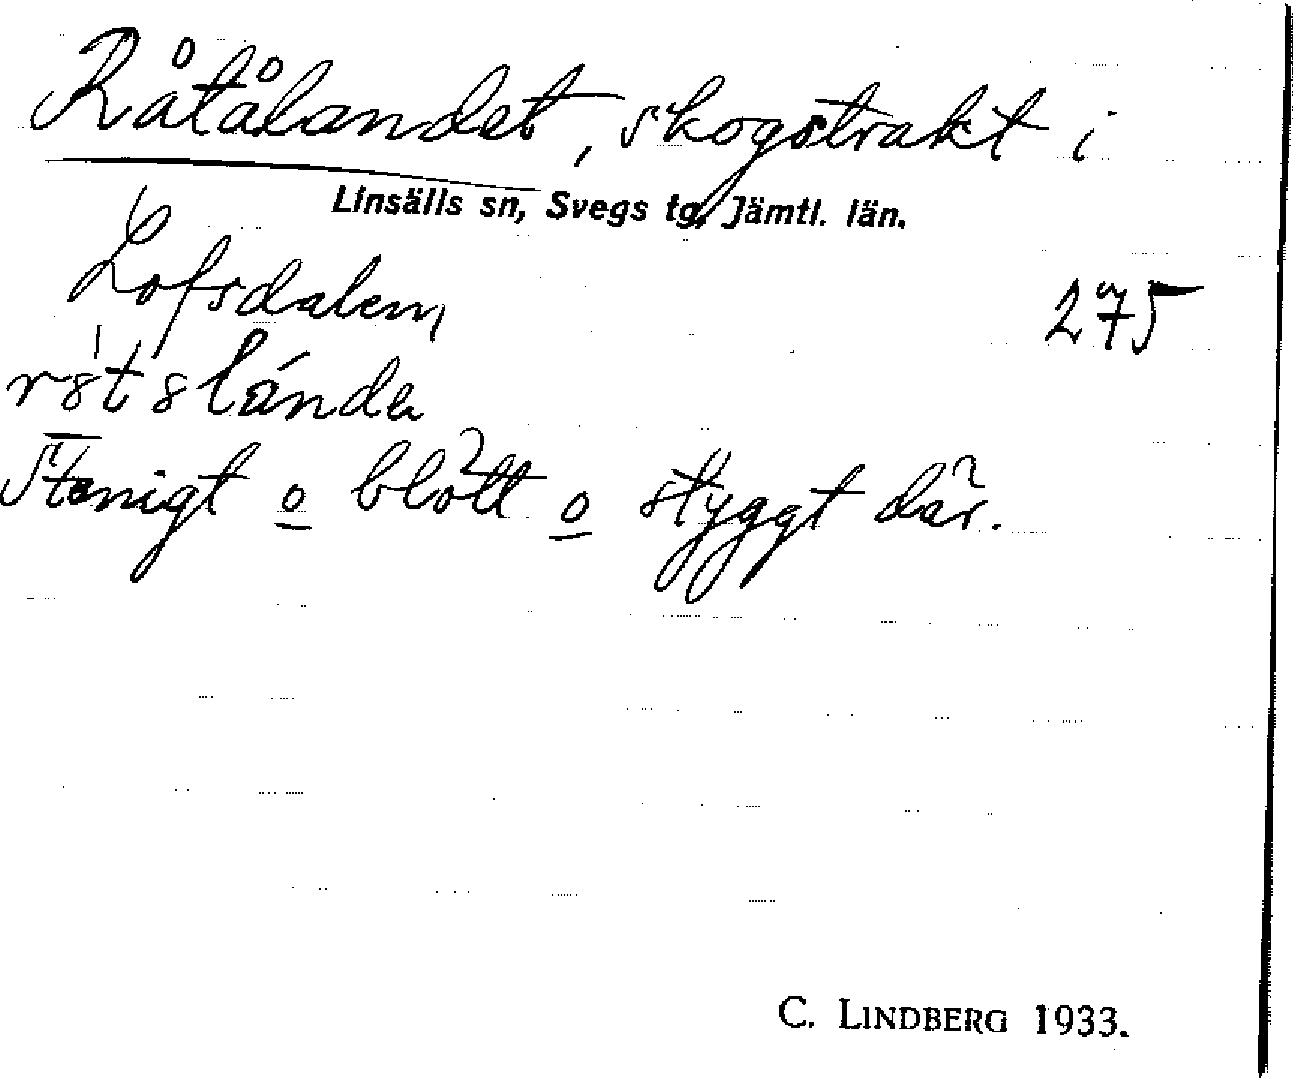 Råtålandet, skogstrakt i
Linsälls sn, Svegs tg, Jämtl. län.
Lofsdalen,
275
Stenigt o blött o styggt där.
C. LINDBERG 1933.